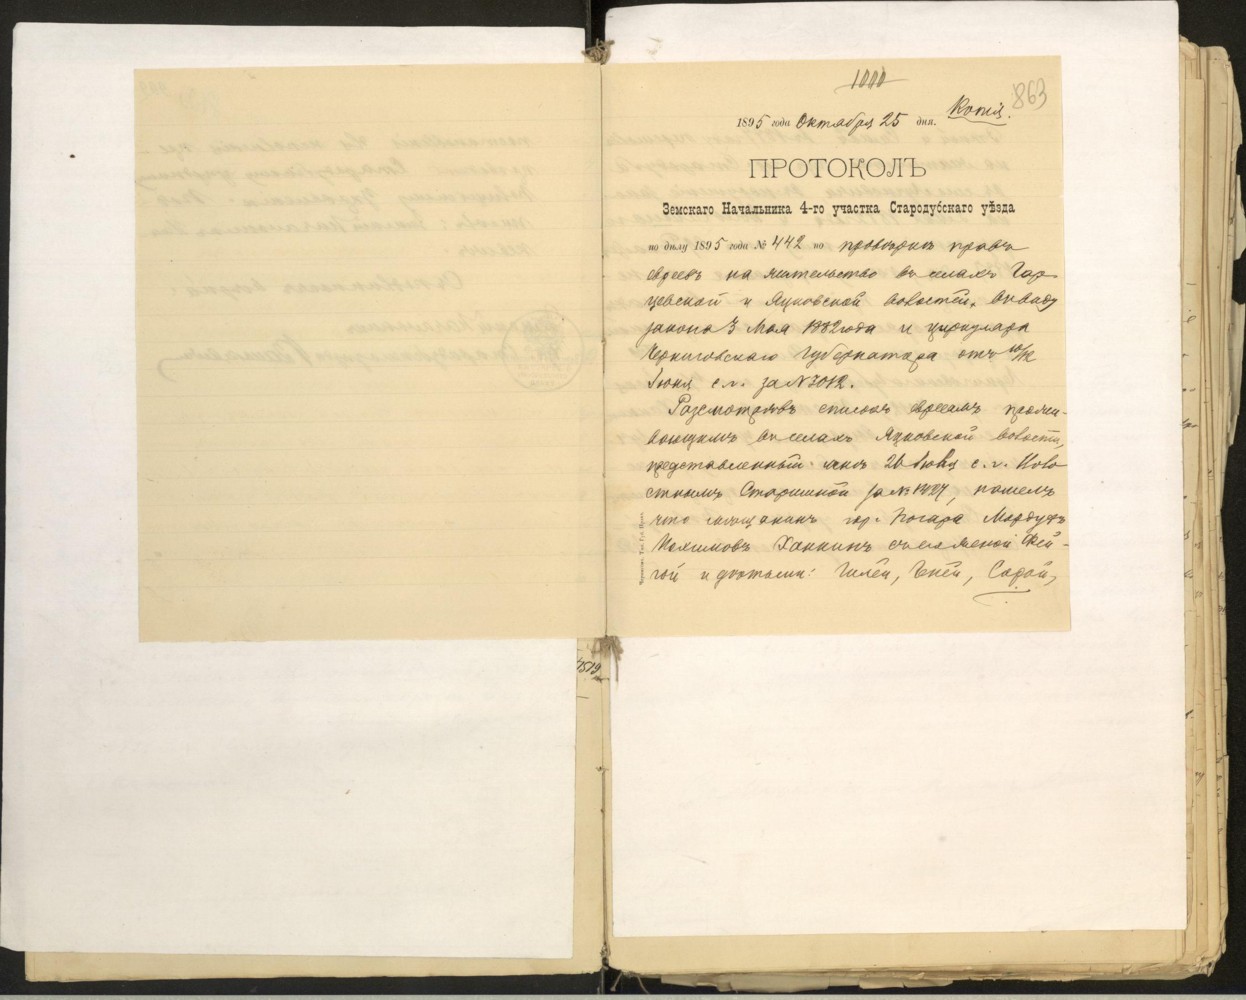 1000
863
Копія.
1895 года Октября 25 дня.
ПРОТОКОЛЪ
Земскаго Начальника 4-го участка Стародубскаго уѣзда
по дѣлу 1895 года № 442 по провѣркѣ правъ
евреевъ на жительство въ селахъ Гар-
цевской и Яцковской волостей, въ виду
закона 3 Мая 1882 года и циркуляра
Черниговскаго Губернатора отъ 10/12
Іюня с. г. за №
Разсмотрѣвъ списокъ евреямъ прожи-
вающимъ въ селахъ Яцковской волости,
представленный 26 Іюня с. г. Воло
стнымъ Старшиной за № 1427, нашелъ
что мѣщанинъ гор. Погара Мордухъ
Ханкинъ съ женой Фей-
гой и дѣтьми: Сарой,
Чернигов. Тип. Губ. Правл.
1519